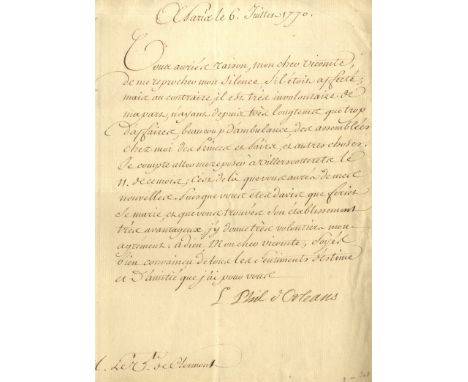 A Paris le 6. Juillet 1770.
Vous auriés raison, mon cher vicomte,
de me reprocher mon silence s'il étoit affecté;
mais au contraire, il est très involontaire de
ma part, n'ayant depuis très longtems que trop
d'affaires, beaucoup d'ambulance, des assemblées
chez moi des Princes et Pairs, et autres choses.
Je compte aller me reposer à Villerscotterets le
11. de ce mois; c'est de là que vous aurés de mes
nouvelles. Puisque vous êtes d'avis que
se marie, et que vous trouvés son établissement
très avantageux, j'y donne très volontiers mon
agrément. adieu, Mon cher vicomte, soyés
bien convaincu de tous les sentiments d'estime
et D'amitié que j'ai pour vous
L Phil d'Orleans
de Clermont